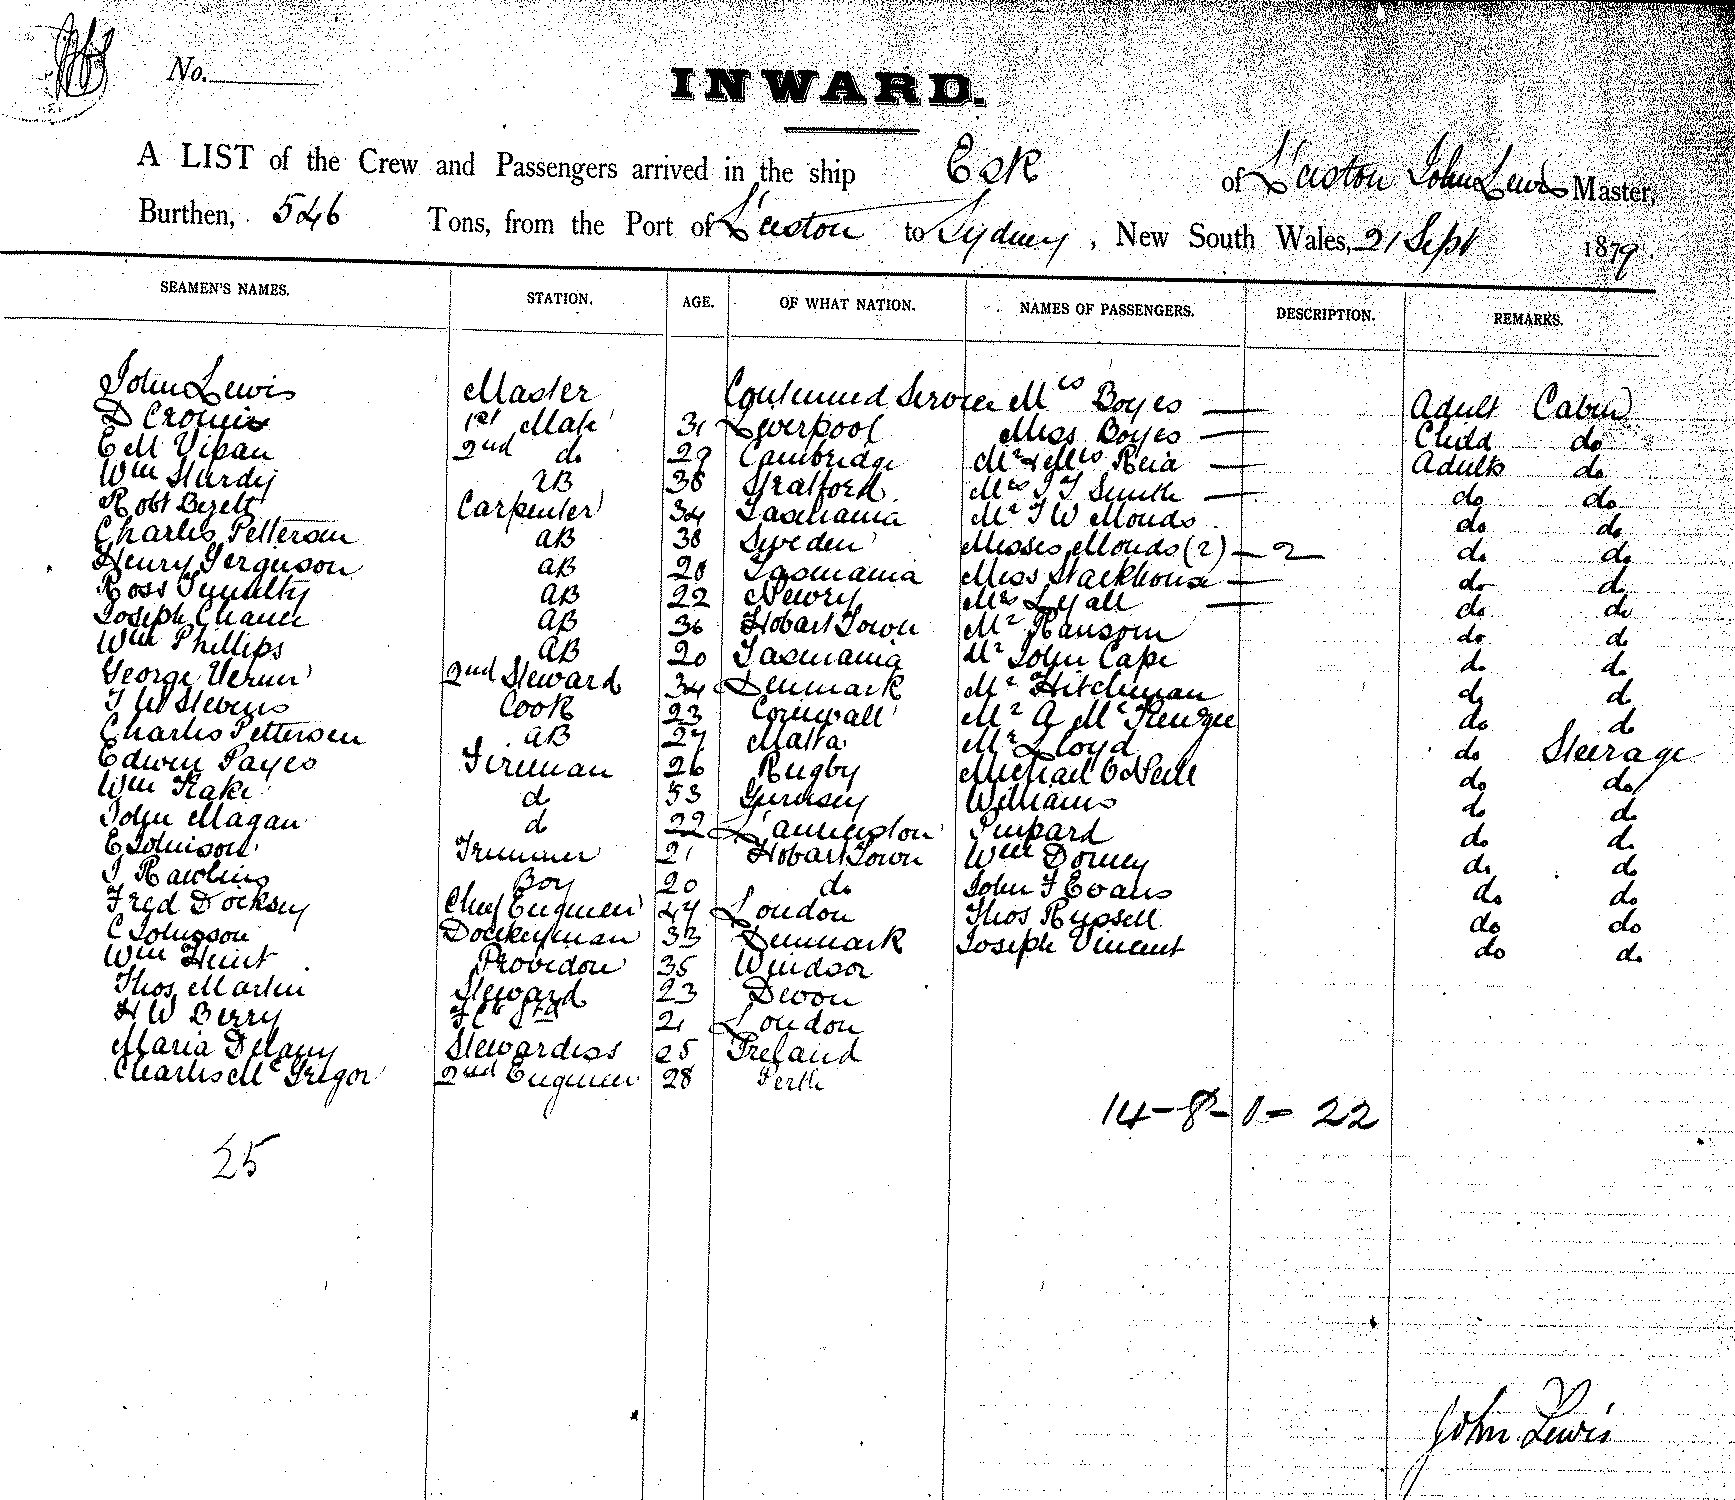 No.
INWARD.
A LIST of the Crew and Passengers arrived in the ship Esk of L'ceston John Lewis Master,
Burthen, 546 Tons, from the Port of L'ceston to Sydney, New South Wales, 21 Sept 1879.
SEAMEN'S NAMES. STATION. AGE. OF WHAT NATION. NAMES OF PASSENGERS. DESCRIPTION. REMARKS.
John Lewis Master Continued Service Mrs Boyes — Adult Cabin
D Cromie 1st Mate 31 Liverpool Miss Boyes — Child do
E M Vipan 2nd do 29 Cambridge Mr & Mrs Reid — Adults do
Wm Hurdy AB 38 Stratford Mrs J T Smith — do do
Robt Carpenter 34 Tasmania Mr T W Monds do do
Charles Pettersen AB 38 Sweden Misses Monds (2) — 2 — do do
Henry Ferguson AB 28 Tasmania Miss Stackhouse — do do
Ross AB 22 Newry Mrs Lyall — do do
Joseph AB 36 Hobart Town Mr Ransom do do
Wm Phillips AB 20 Tasmania Mr John Cape do do
George 2nd Steward 34 Denmark Mr Hitchman do do
T W Stevens Cook 23 Cornwall Mr A McKenzie do do
Charles Pettersen AB 27 Malta Mr Lloyd do Steerage
Edwin Payes Fireman 26 Rugby Michael O'Neill do do
Wm d 53 Gurnsey Williams do do
John Magan d 22 L'aunceston Pinpard do do
E Johnson Trimmer 21 Hobart Town Wm Dorney do do
J Rawlins Boy 20 do John F Evans do do
Fred Dorksey Chief Engineer 47 London Thos Russell do do
C Johnson Donkeyman 33 Denmark Joseph Vincent do do
Wm Hunt Providore 35 Windsor
Thos Martin Steward 23 Devon
H W Berry 21 London
Maria Delany Stewardess 25 Ireland
Charles McGregor 2nd Engineer 28 Perth
14 – 8 – 0 – 22
25
John Lewis